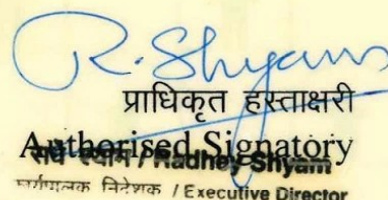 R. Shyam
प्राधिकृत हस्ताक्षरी
Authorised Signatory
राधे श्याम / Radhey Shyam
कार्यपालक निदेशक / Executive Director